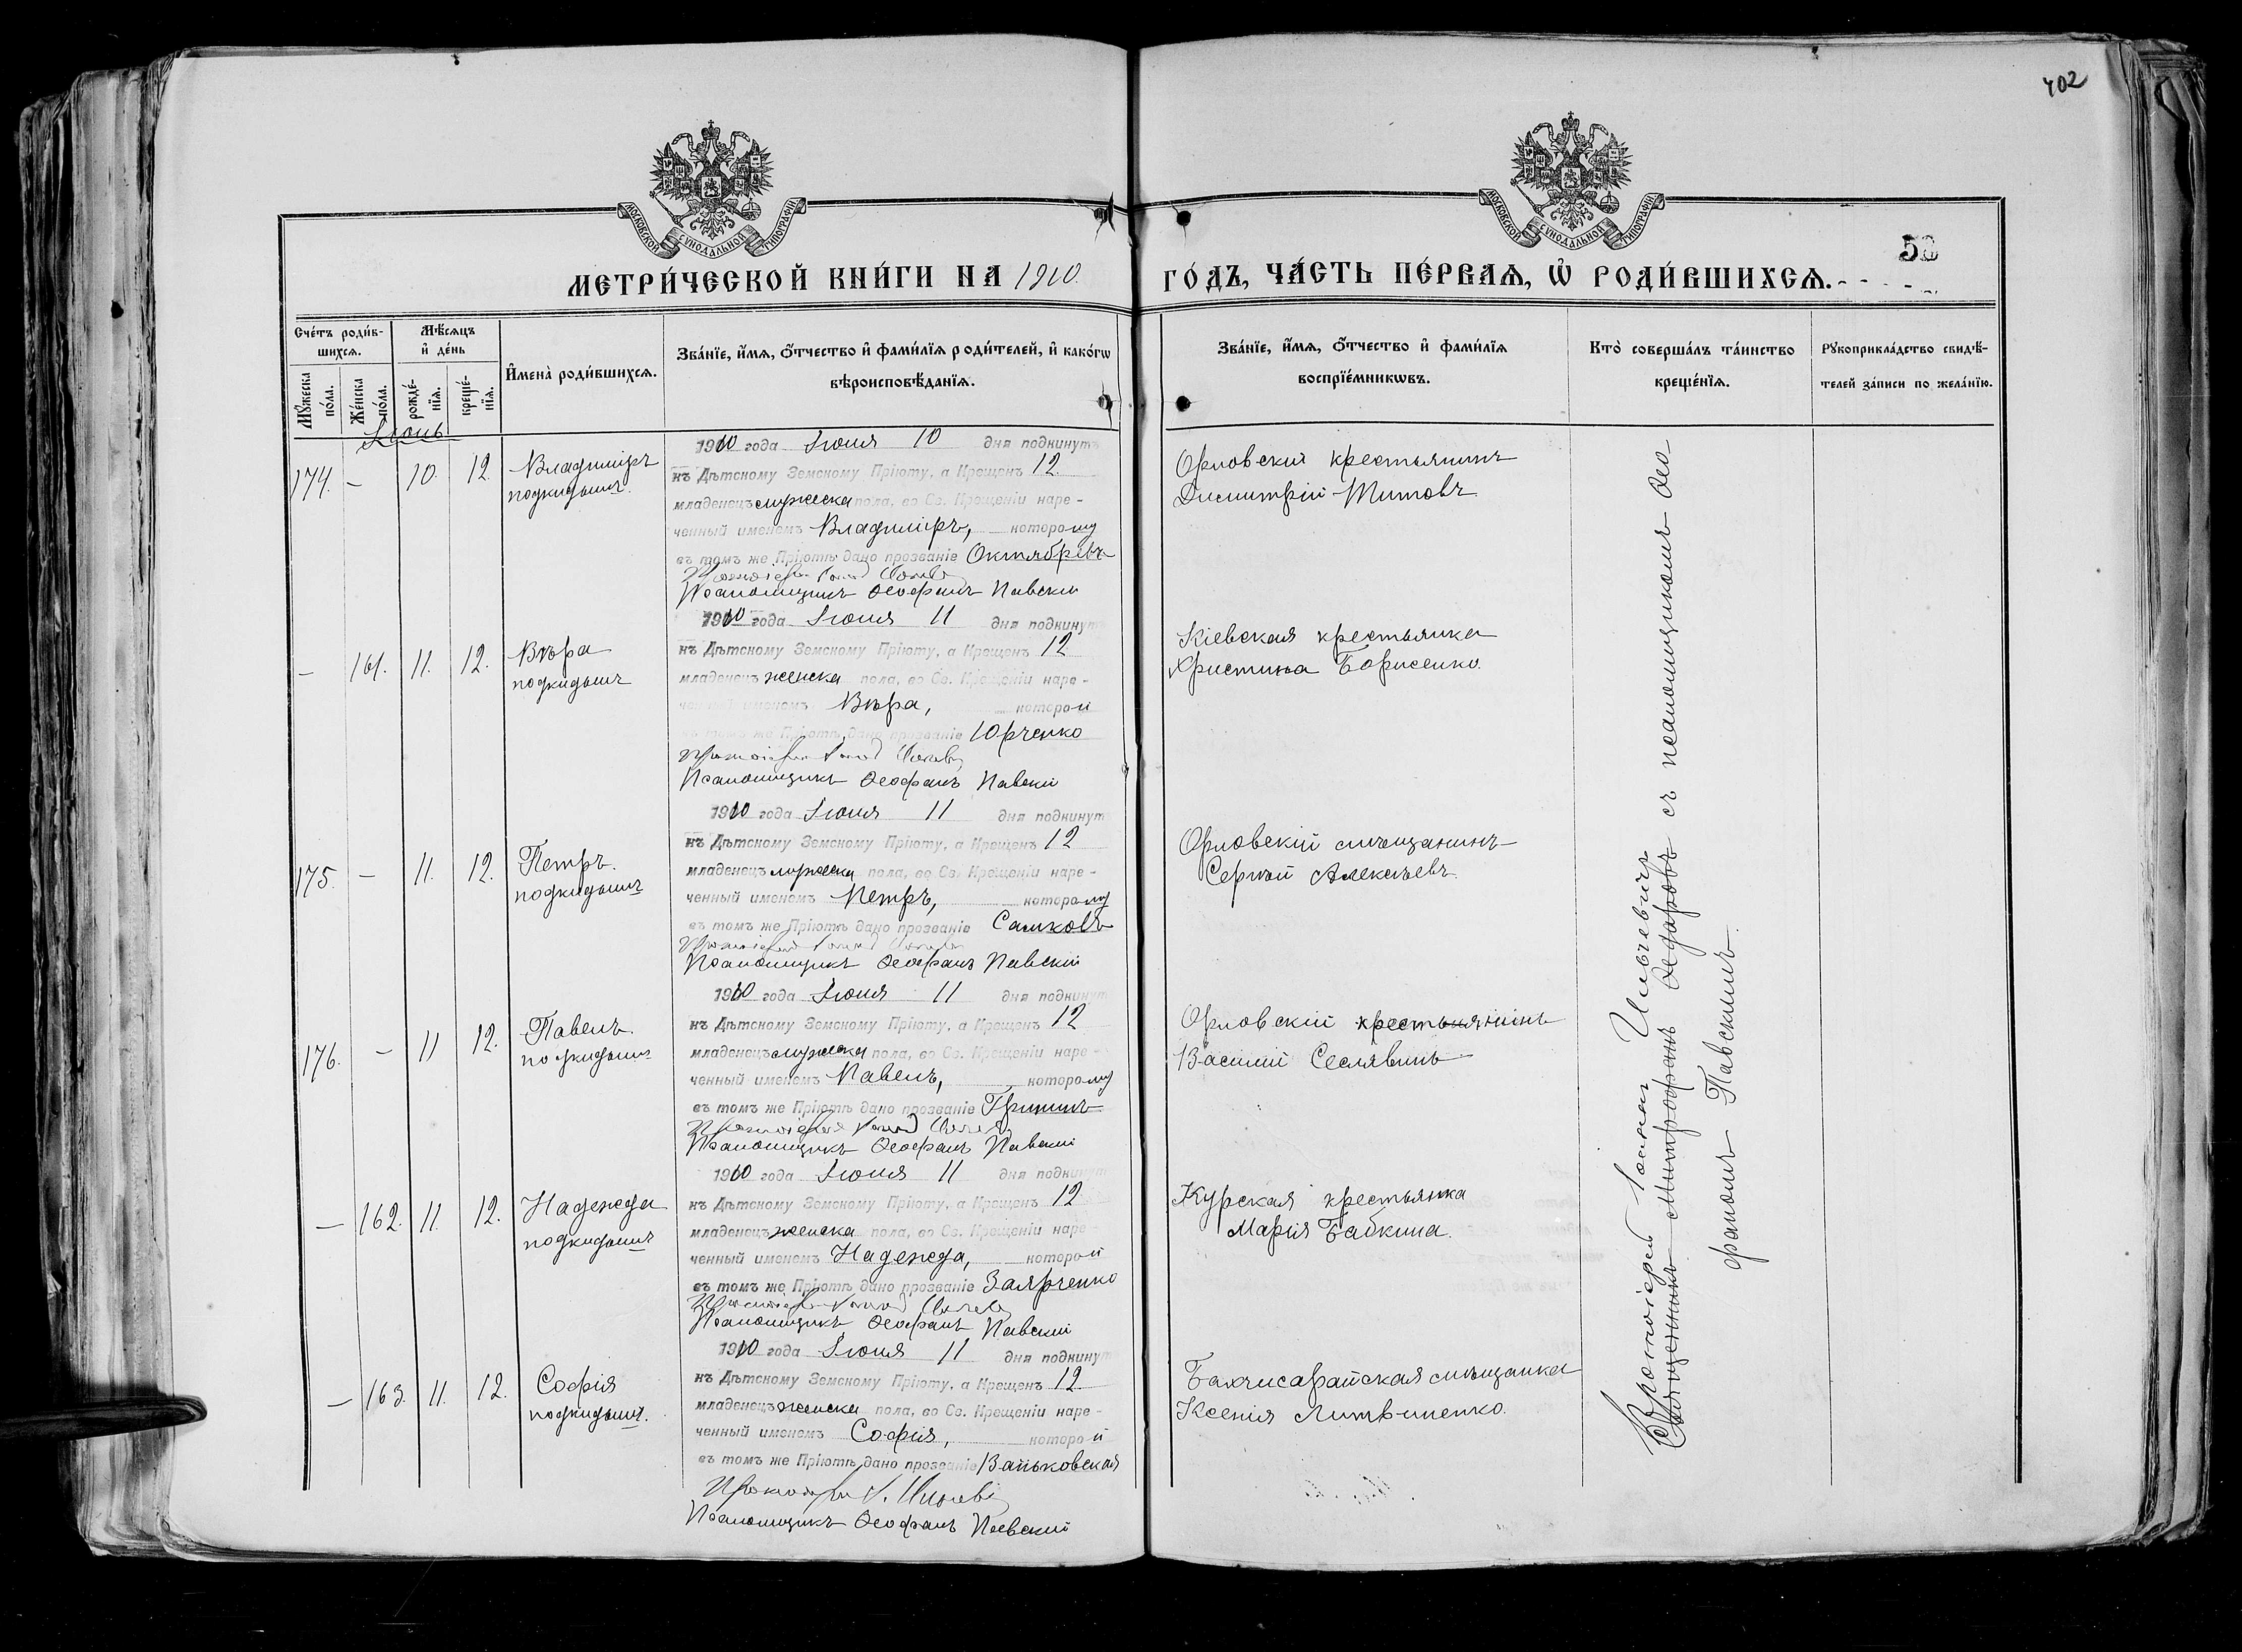 402
МОСКОВСКОЙ СѴНОДАЛЬНОЙ ТИПОГРАФІИ
МОСКОВСКОЙ СѴНОДАЛЬНОЙ ТИПОГРАФІИ
МЕТРИ́ЧЕСКОЙ КНИ́ГИ НА 1910. ГО́ДЪ, ЧА́СТЬ ПЕ́РВАѦ, Ѡ҆ РОДИ́ВШИХСѦ.
Сче́тъ роди́в-
шихсѧ.
Мꙋ́жеска по́ла.
Же́нска по́ла.
Мѣ́сѧцъ
и҆ де́нь
рожде́-
нїѧ.
креще́-
нїѧ.
И҆мена̀ роди́вшихсѧ.
Зва́нїе, и҆́мѧ, ѻ҆́тчество и҆ фами́лїѧ роди́телей, и҆ како́гѡ
вѣроисповѣ́данїѧ.
Зва́нїе, и҆́мѧ, ѻ҆́тчество и҆ фами́лїѧ
воспрїе́мникѡвъ.
Кто̀ соверша́лъ та́инство
креще́нїѧ.
Рꙋкоприкла́дство свидѣ́-
телей за́писи по жела́нїю.
Іюнь
174. — 10. 12. Владиміръ
подкидышъ.
1910 года Іюня 10 дня подкинутъ
къ Дѣтскому Земскому Пріюту, а Крещенъ 12
младенецъ мужеска пола, во Св. Крещеніи наре-
ченный именемъ Владиміръ, которому
въ томъ же Пріютѣ дано прозваніе Октябревъ
Псаломщикъ Ѳеофанъ Павскій
Орловскій крестьянинъ
Димитрій Титовъ
— 161. 11. 12. Вѣра
подкидышъ
1910 года Іюня 11 дня подкинут
къ Дѣтскому Земскому Пріюту, а Крещенъ 12
младенецъ женска пола, во Св. Крещеніи наре-
ченный именемъ Вѣра, которой
въ томъ же Пріютѣ дано прозваніе Юрченко
Псаломщикъ Ѳеофанъ Павскій
Кіевская крестьянка
Христина Борисенко.
175. — 11. 12. Петръ.
подкидышъ
1910 года Іюня 11 дня подкинут
къ Дѣтскому Земскому Пріюту, а Крещенъ 12
младенецъ мужеска пола, во Св. Крещеніи наре-
ченный именемъ Петръ, которому
въ томъ же Пріютѣ дано прозваніе Сашковъ
Псаломщикъ Ѳеофанъ Павскій
Орловскій мѣщанинъ
Сергѣй Алексѣевъ.
176. — 11 12. Павелъ.
подкидышъ
1910 года Іюня 11 дня подкинут
къ Дѣтскому Земскому Пріюту, а Крещенъ 12
младенецъ мужеска пола, во Св. Крещеніи наре-
ченный именемъ Павелъ, которому
въ томъ же Пріютѣ дано прозваніе Гришинъ
Псаломщикъ Ѳеофанъ Павскій
Орловскій крестьянинъ
Василій Сеслявинъ
— 162. 11. 12. Надежда
подкидышъ
1910 года Іюня 11 дня подкин
къ Дѣтскому Земскому Пріюту, а Крещенъ 12
младенецъ женска пола, во Св. Крещеніи наре
ченный именемъ Надежда, которой
въ томъ же Пріютѣ дано прозваніе Заярченко
Псаломщикъ Ѳеофанъ Павскій
Курская крестьянка
Марія Бабкина.
— 163. 11. 12. Софія
подкидышъ.
1910 года Іюня 11 дня подкинут
къ Дѣтскому Земскому Пріюту, а Крещенъ 12
младенецъ женска пола, во Св. Крещеніи наре-
ченный именемъ Софія, которой
въ томъ же Пріютѣ дано прозваніе Ваньковская
Псаломщикъ Ѳеофанъ Павскій
Бахчисарайская мѣщанка
Ксенія Литвиненко.
Протоіерей Іоаннъ Ильичевъ
Священникъ Митрофанъ Ѳедоровъ съ псаломщикомъ Ѳео-
фаномъ Павскимъ.